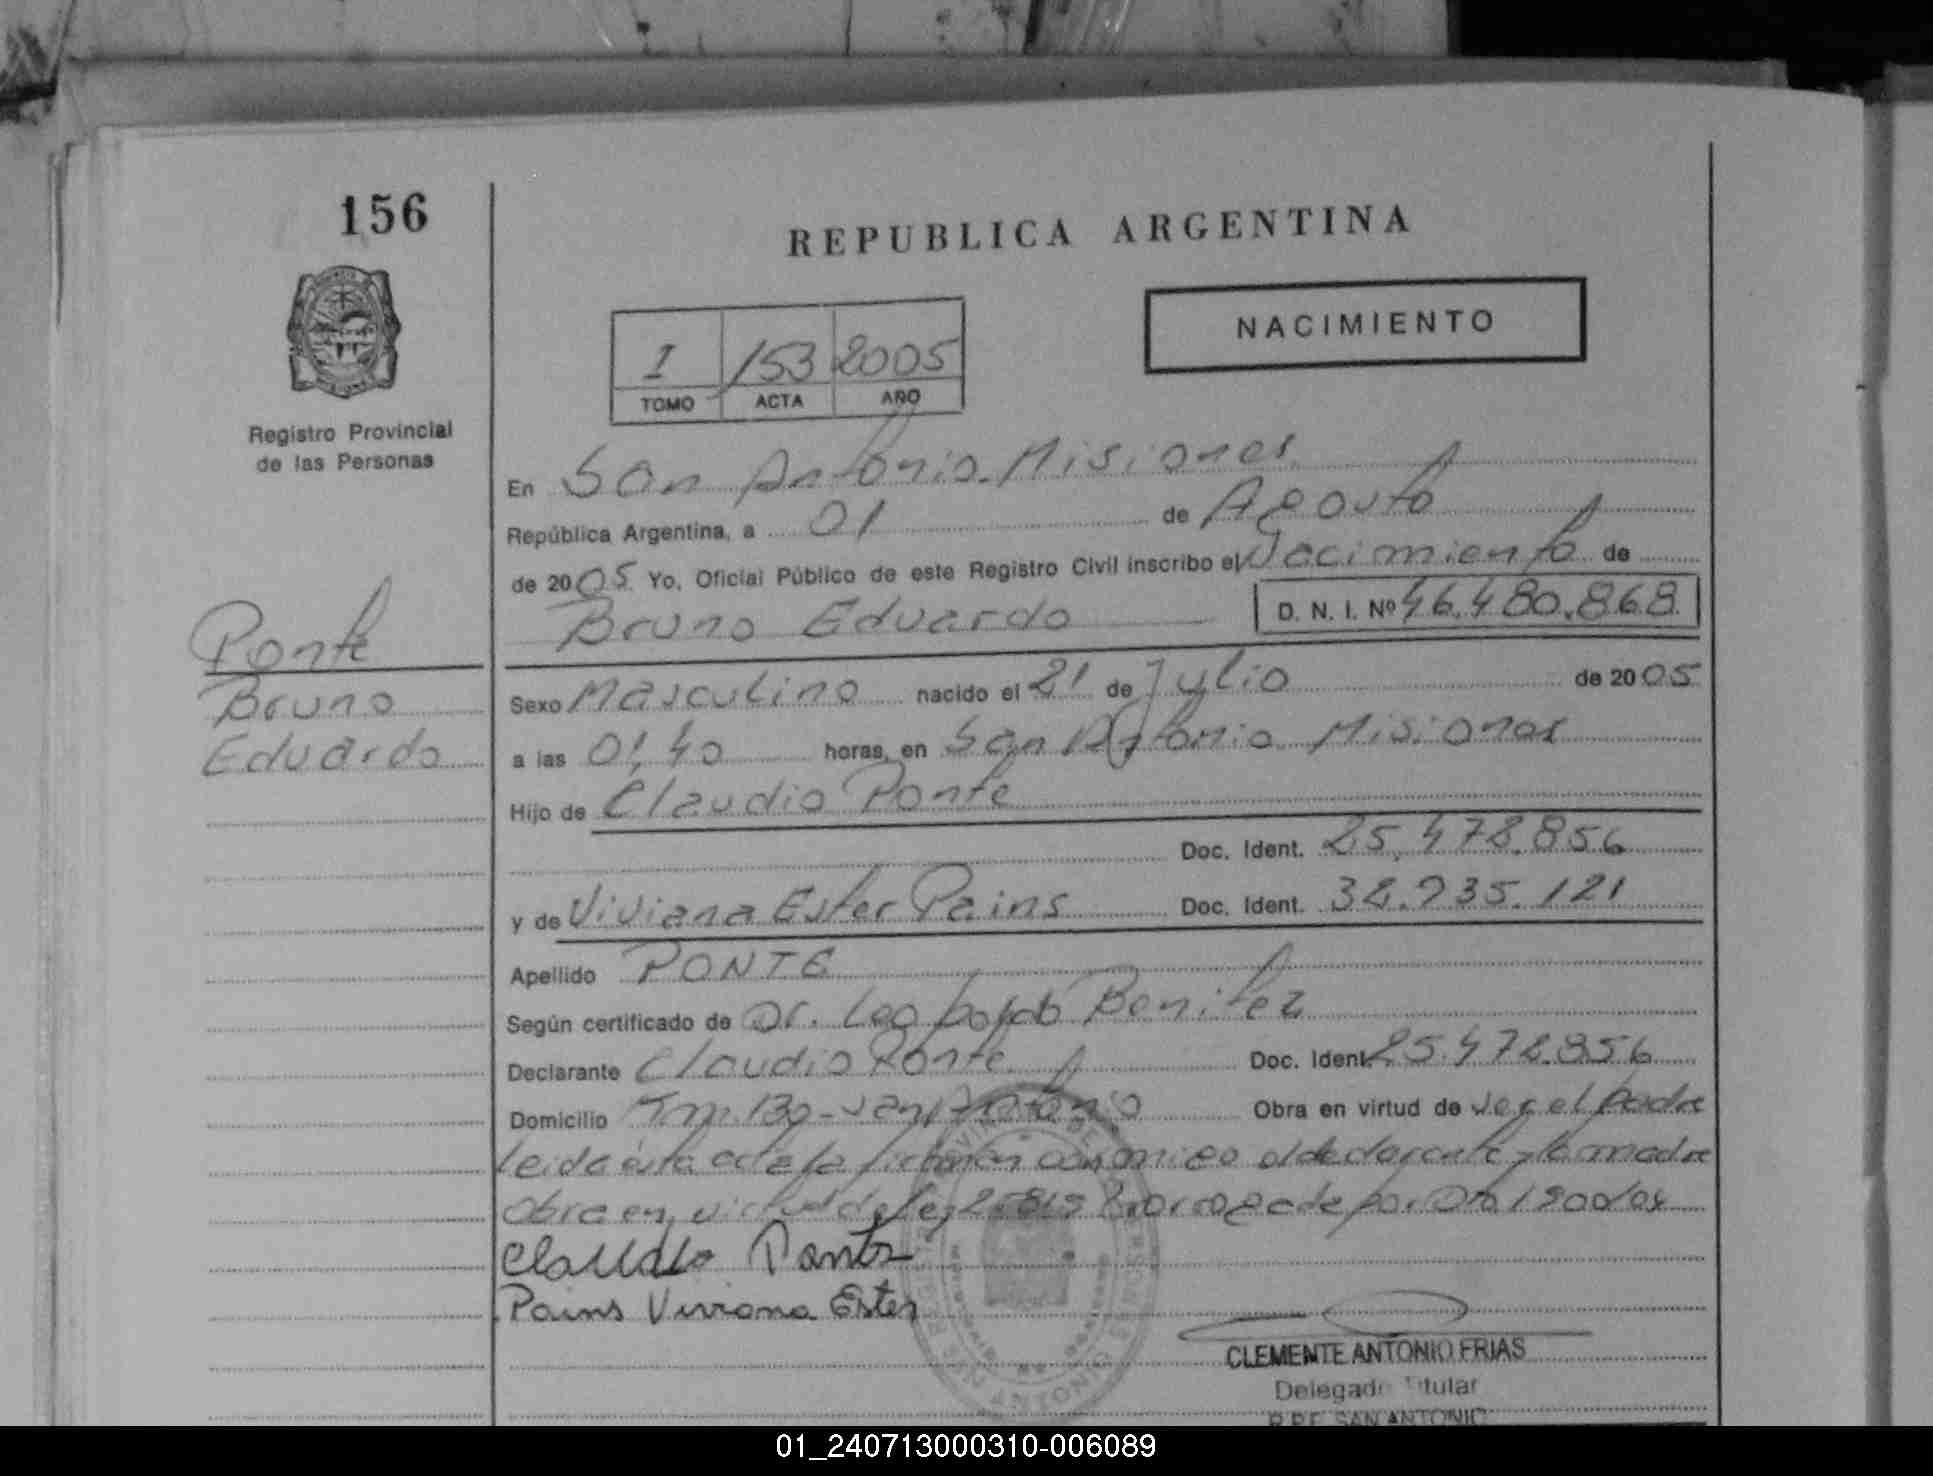 156
REPUBLICA ARGENTINA
NACIMIENTO
I 153 2005
TOMO ACTA AÑO
Registro Provincial
de las Personas
En San Antonio. Misiones
República Argentina, a 01 de Agosto
de 2005 Yo, Oficial Público de este Registro Civil inscribo el Nacimiento de
Bruno Eduardo D. N. I. Nº 46.480.868
Ponte
Bruno
Eduardo
Sexo Masculino nacido el 21 de Julio de 2005
a las 01,40 horas, en San Antonio Misiones
Hijo de Claudio Ponte
Doc. Ident. 25.472.856
y de Viviana Ester Pains Doc. Ident. 32.735.121
Apellido PONTE
Según certificado de Dr. Leopoldo Benitez
Declarante Claudio Ponte Doc. Ident. 25.472.856
Domicilio Km. 130 - San Antonio Obra en virtud de ser el padre
Leida esta acta la firman conmigo el declarante y la madre
Obra en virtud de ley 25819 Prorrogada por
Claudio Ponte
Pains Viviana Ester
CLEMENTE ANTONIO FRIAS
Delegado Titular
R.P.P. SAN ANTONIO
01_240713000310-006089